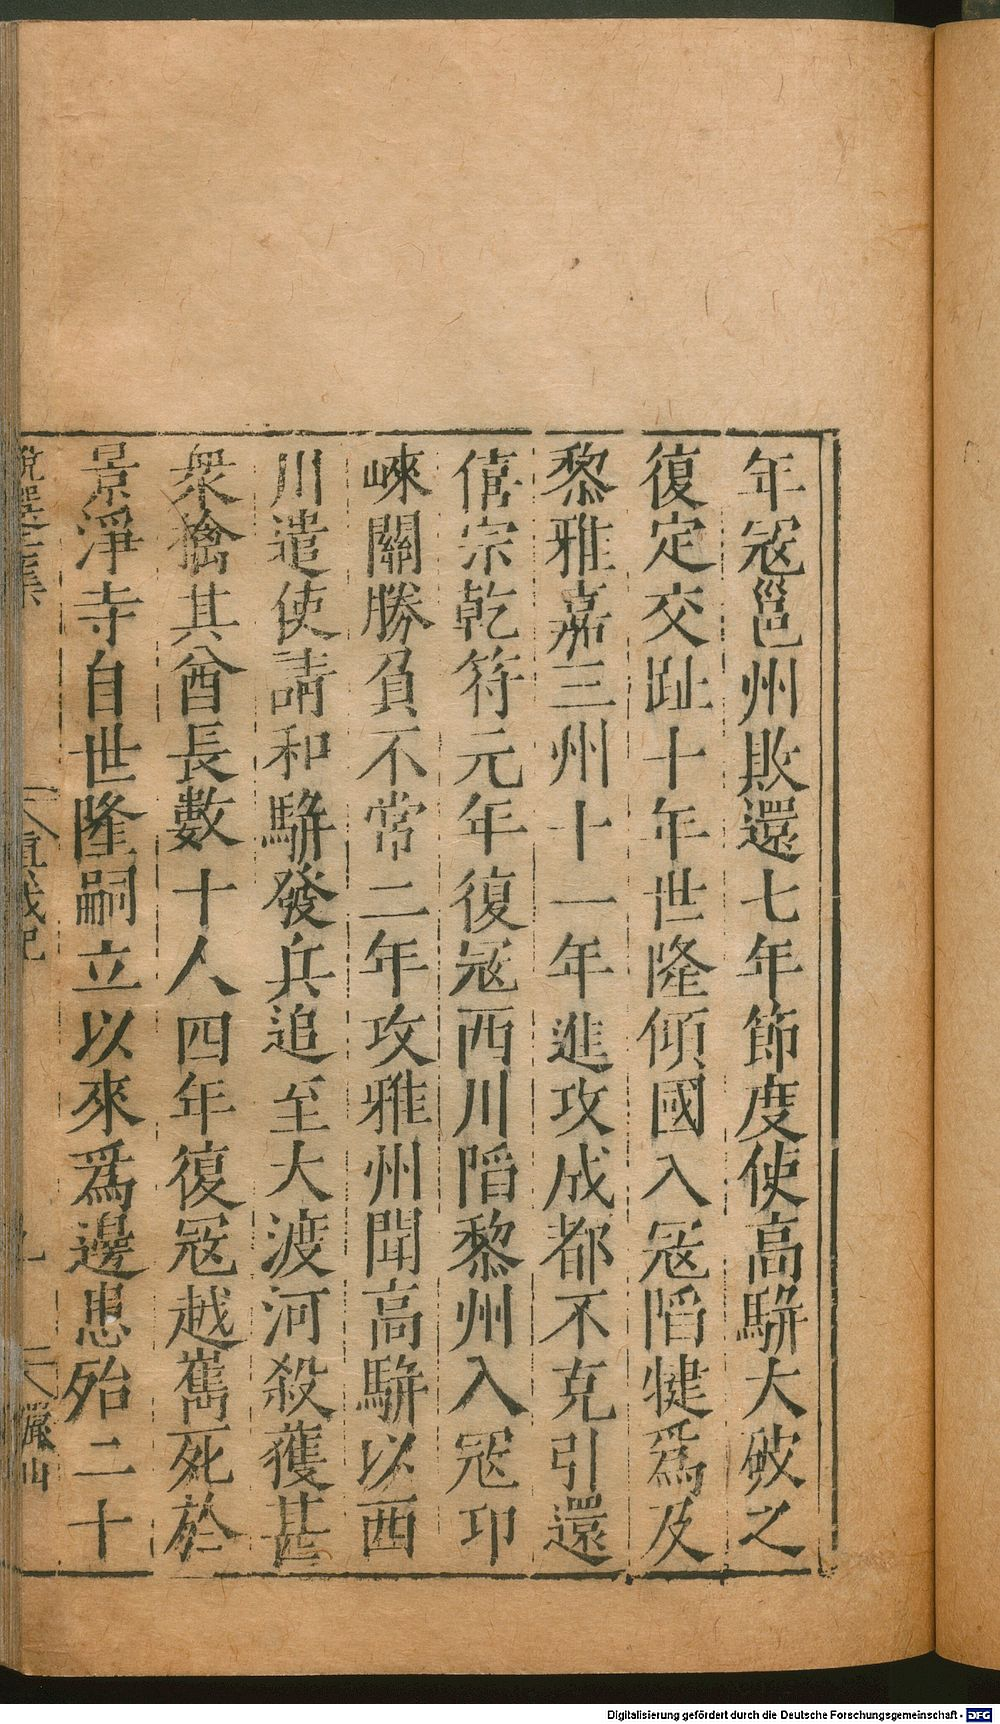 年冦邕州敗還七年節度使高駢大破之
復定交趾十年世隆傾國入冦陷犍爲及
黎雅嘉三州十一年進攻成都不克引還
僖宗乾符元年復冦西川陷黎州入冦卭
崍關勝負不常二年攻雅州聞高駢以西
川遣使請和駢發兵追至大渡河殺獲甚
衆擒其酋長數十人四年復冦越嶲死於
景淨寺自世隆嗣立以來爲邊患殆二十
說選壬集
九
Digitalisierung gefördert durch die Deutsche Forschungsgemeinschaft - DFG